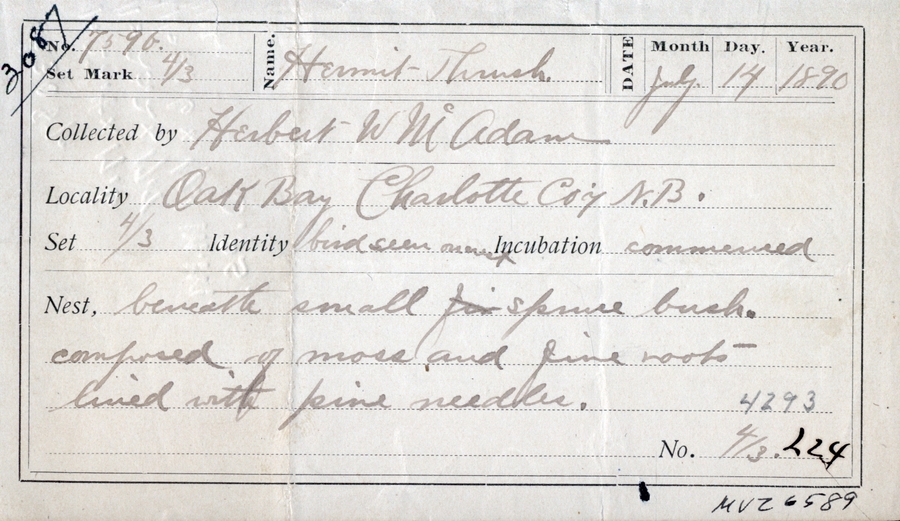 3087
No. 759b. Name. Hermit Thrush. DATE Month Day. Year.
Set Mark 4/3 July. 14 1890
Collected by Herbert W McAdam
Locality Oak Bay Charlotte Co'y N.B.
Set 4/3 Identity bird seen near Incubation commenced
Nest, beneath small fir spruce bush.
composed of moss and fine roots
lined with pine needles.
4293
No. 4/3. 224
MVZ 6589